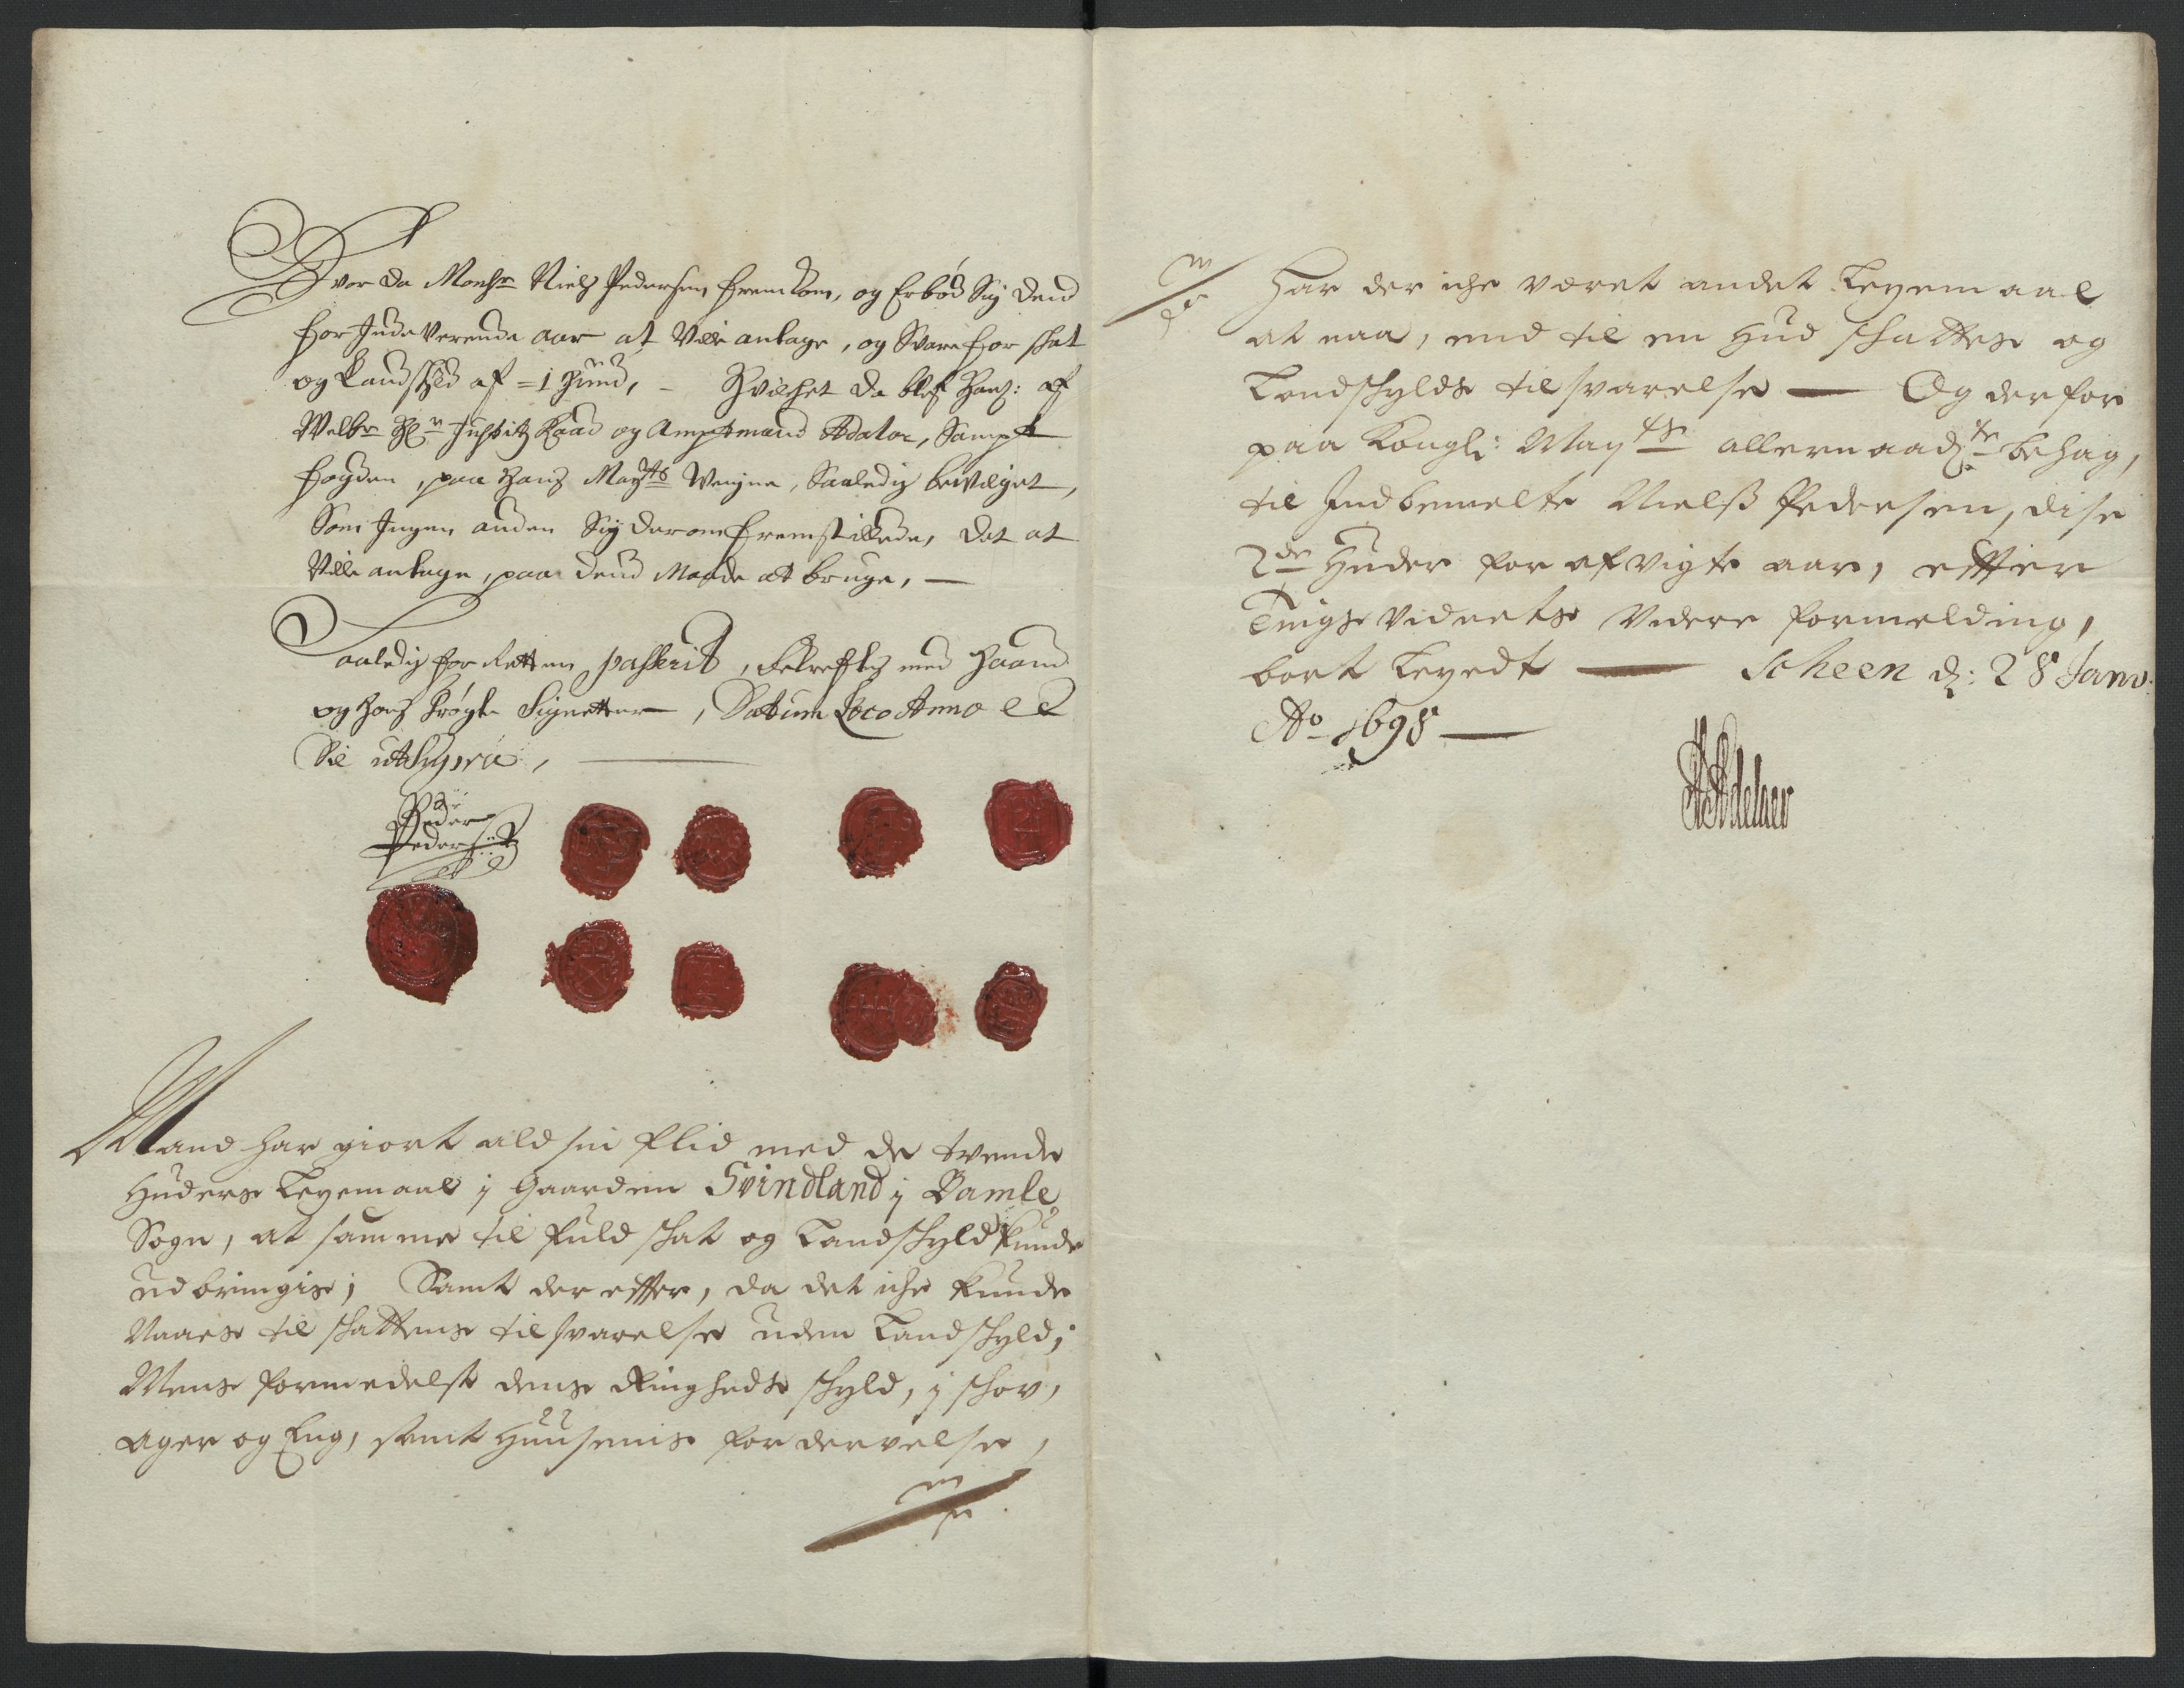 Hvor da Monsr Niels Pedersen fremkom, og Erbød Sig dend
for Indeverende aar at Ville antage, og Svare for schat
og Landschÿld af = 1 Huud, – Hvilchet da blef Hans: af
Welbr Hr Justitz Raad og Amptmand Adeler, Sampt
fogden, paa Hans Mayts Weigne, Saaledis bevilget,
Som Ingen anden Sig derom fremstillede, det at
Ville antage, paa dend Maade at bruge, —
Saaledis for Retten passerit, Bekreftis med Haand
og Hoes trøgte Signetter, Datum Loco Anno et
Die ut Supra, —
Peder
Pedersen
Mand har giort ald sin flid med de tvende
Huders Leyemaal i Gaarden Svindland i Bamle
Sogn, at samme til fuld schat og Landschyld kunde
udbringis; Samt derefter, da det iche kunde
Naaes til schattens tilsvarelse uden Landschyld;
Mens formedelst dens Ringheds schyld, i schov,
Ager og Eng, samt Huusenis fordervelse,
Har der iche været andet Leyemaal
at naa, end til en Hud schattes og
Landschylds tilsvarelse — Og derfor
paa Kongl: Mayts allernaadste behag,
til Indbemelte Nielss Pedersen, dise
2de Huder for afvigte aar, effter
Tings Vidnets Videre formelding,
bort Leyedt — Scheen d: 28 Janv:
Ao 1698 —
Adeler